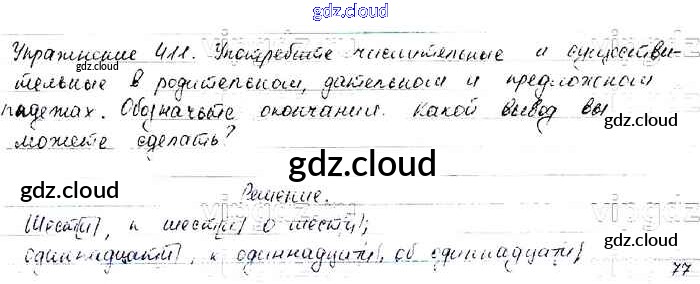 gdz.cloud
Упражнение 411. Употребите числительные и существи-
тельные в родительном, дательном и предложном
падежах. Обозначьте окончания. Какой вывод вы
можете сделать?
gdz.cloud
gdz.cloud
gdz.cloud
gdz.cloud
gdz.cloud
Решение.
Шест[и], к шест[и] о шест[и];
одиннадцат[и], к одиннадцат[и], об одиннадцат[и],
gdz.cloud
gdz.cloud
77